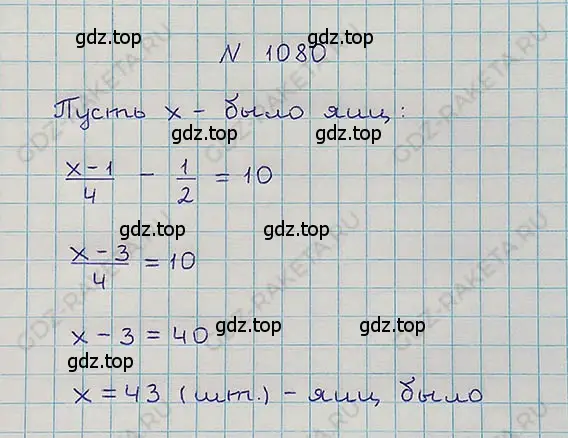 gdz.top
N 1080
Пусть x - было яиц:
gdz.top
(x-1)/4 - 1/2 = 10
gdz.top gdz.top
(x-3)/4 = 10
x - 3 = 40 gdz.top
gdz.top
x = 43 (шт.) - яиц было
gdz.top gdz.top
GDZ-RAKETA.RU
GDZ-RAKETA.RU
GDZ-RAKETA.RU
GDZ-RAKETA.RU